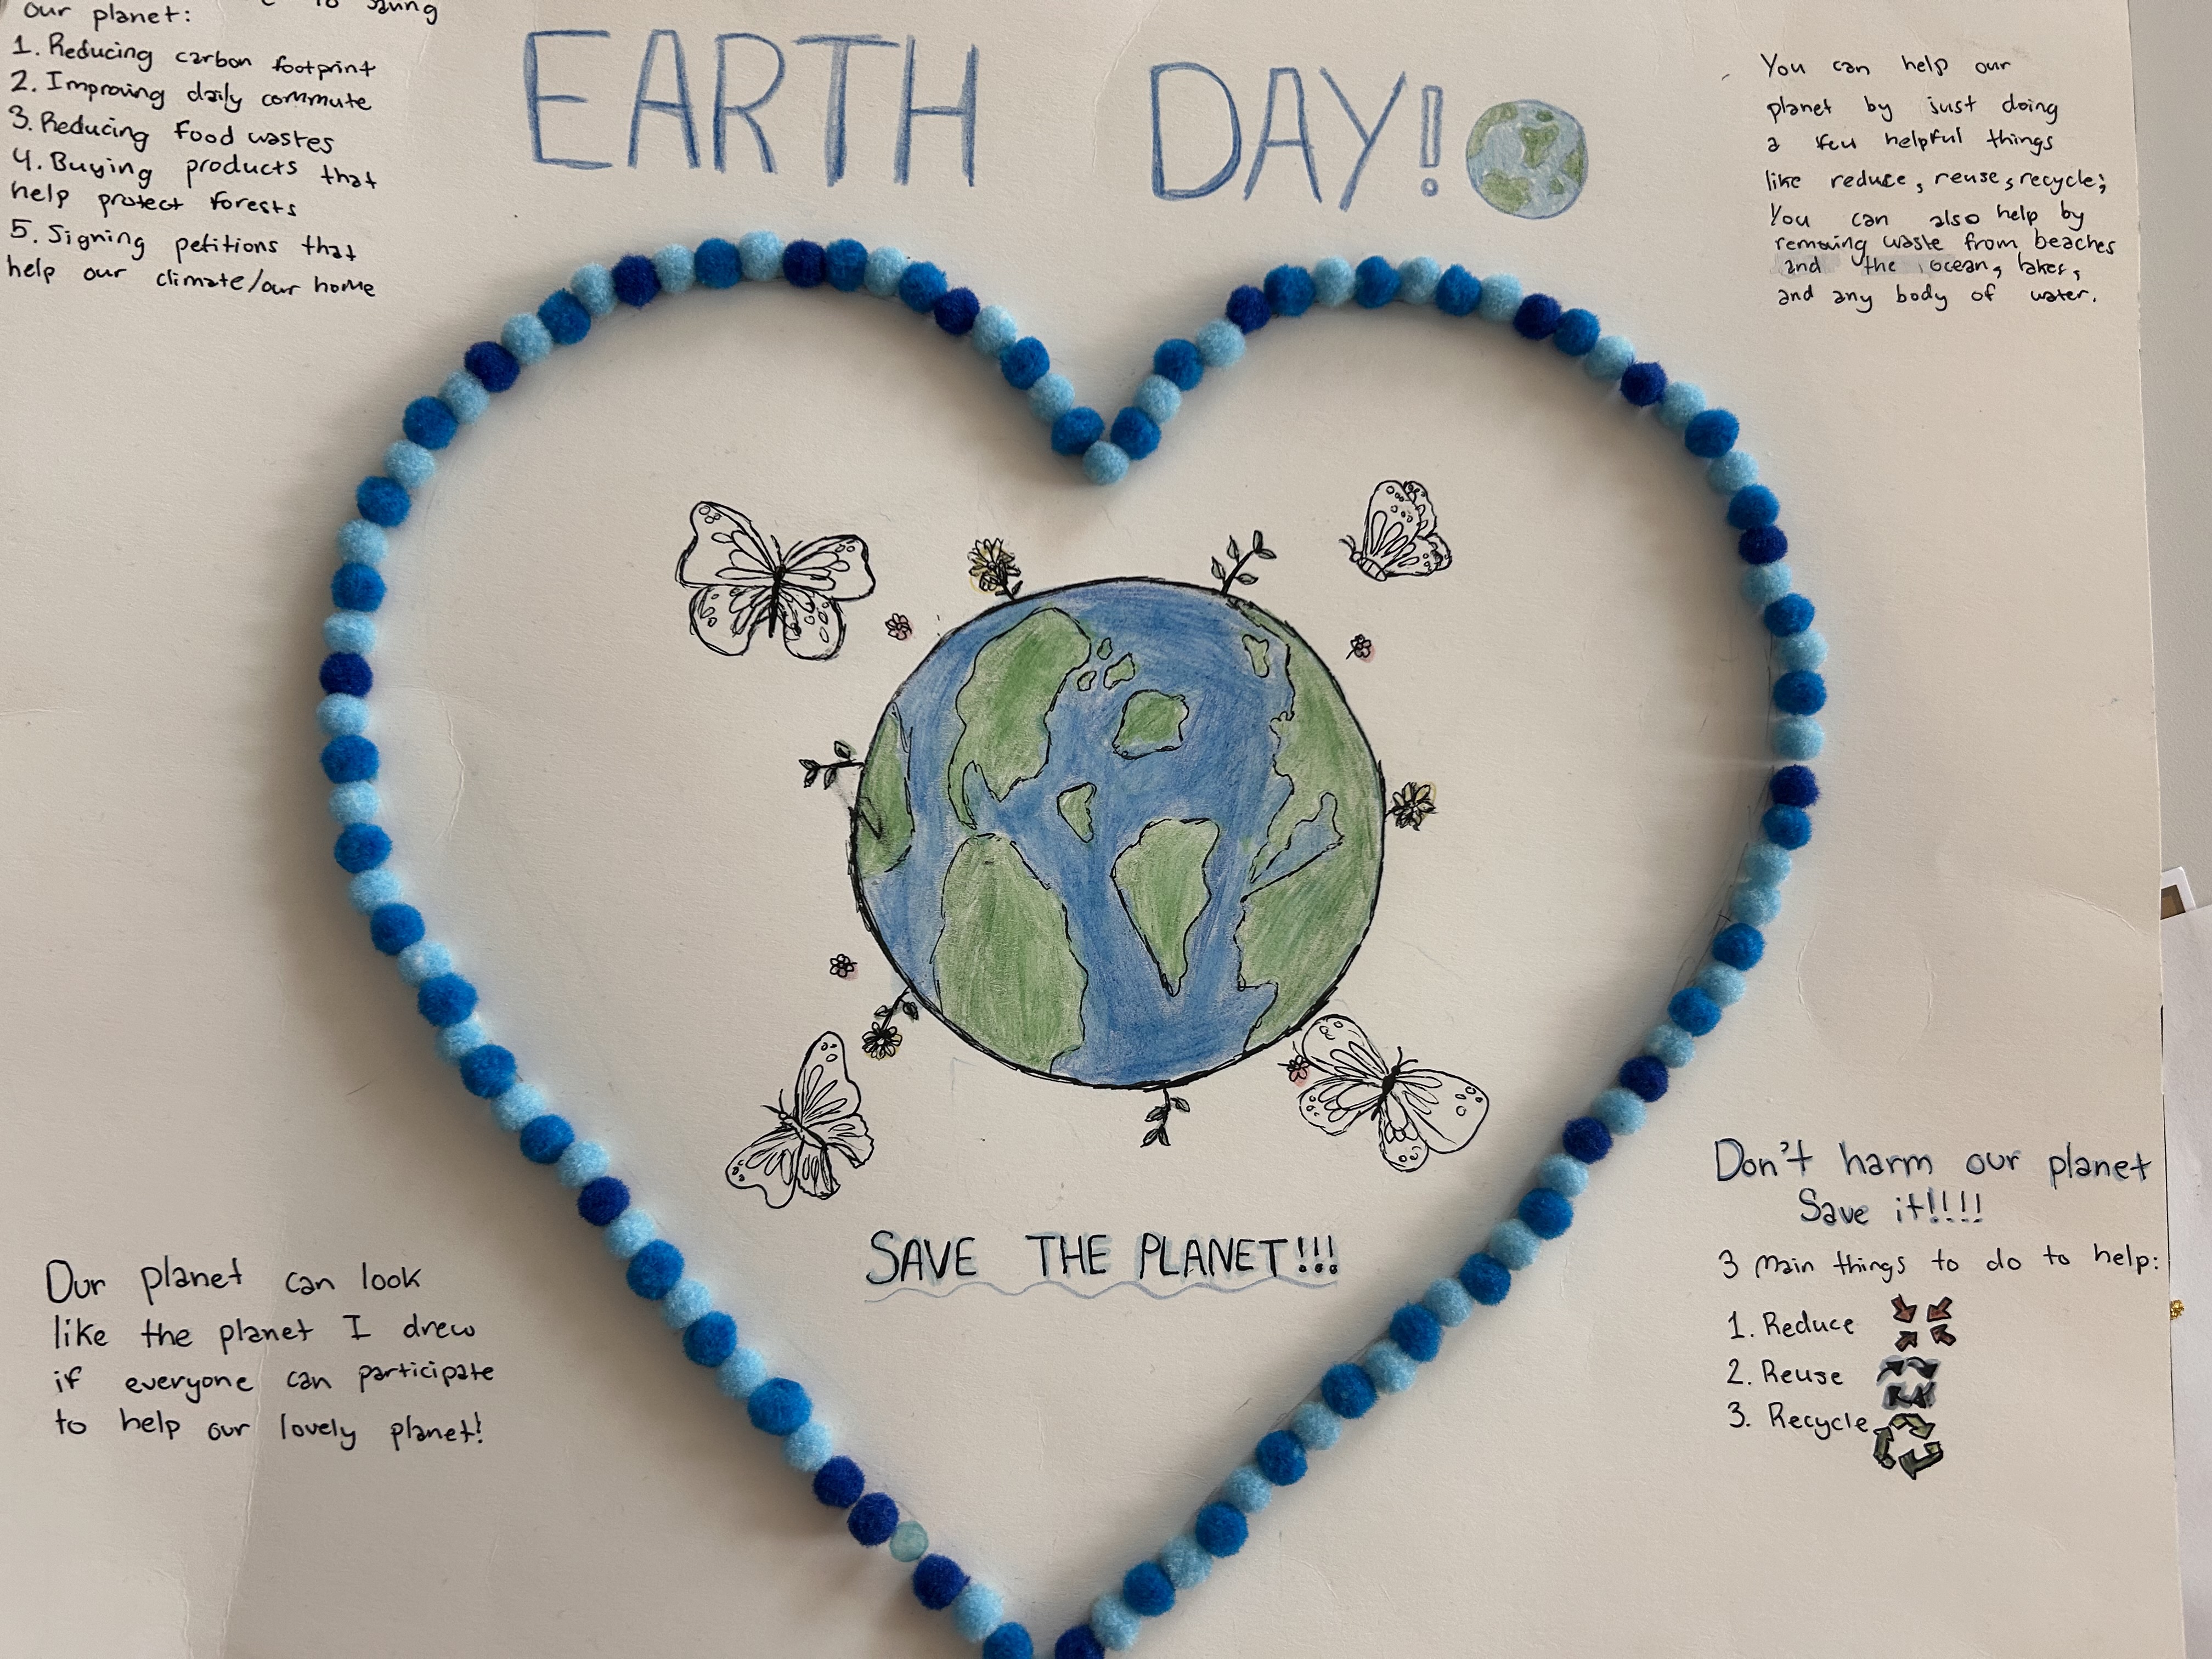 to saving
our planet:
1. Reducing carbon footprint
2. Improving daily commute
3. Reducing food wastes
4. Buying products that
help protect forests
5. Signing petitions that
help our climate/our home
EARTH DAY!
You can help our
planet by just doing
a few helpful things
like reduce, reuse, recycle;
You can also help by
removing waste from beaches
and the ocean, lakes,
and any body of water.
SAVE THE PLANET!!!
Our planet can look
like the planet I drew
if everyone can participate
to help our lovely planet!
Don't harm our planet
Save it!!!!
3 main things to do to help:
1. Reduce
2. Reuse
3. Recycle